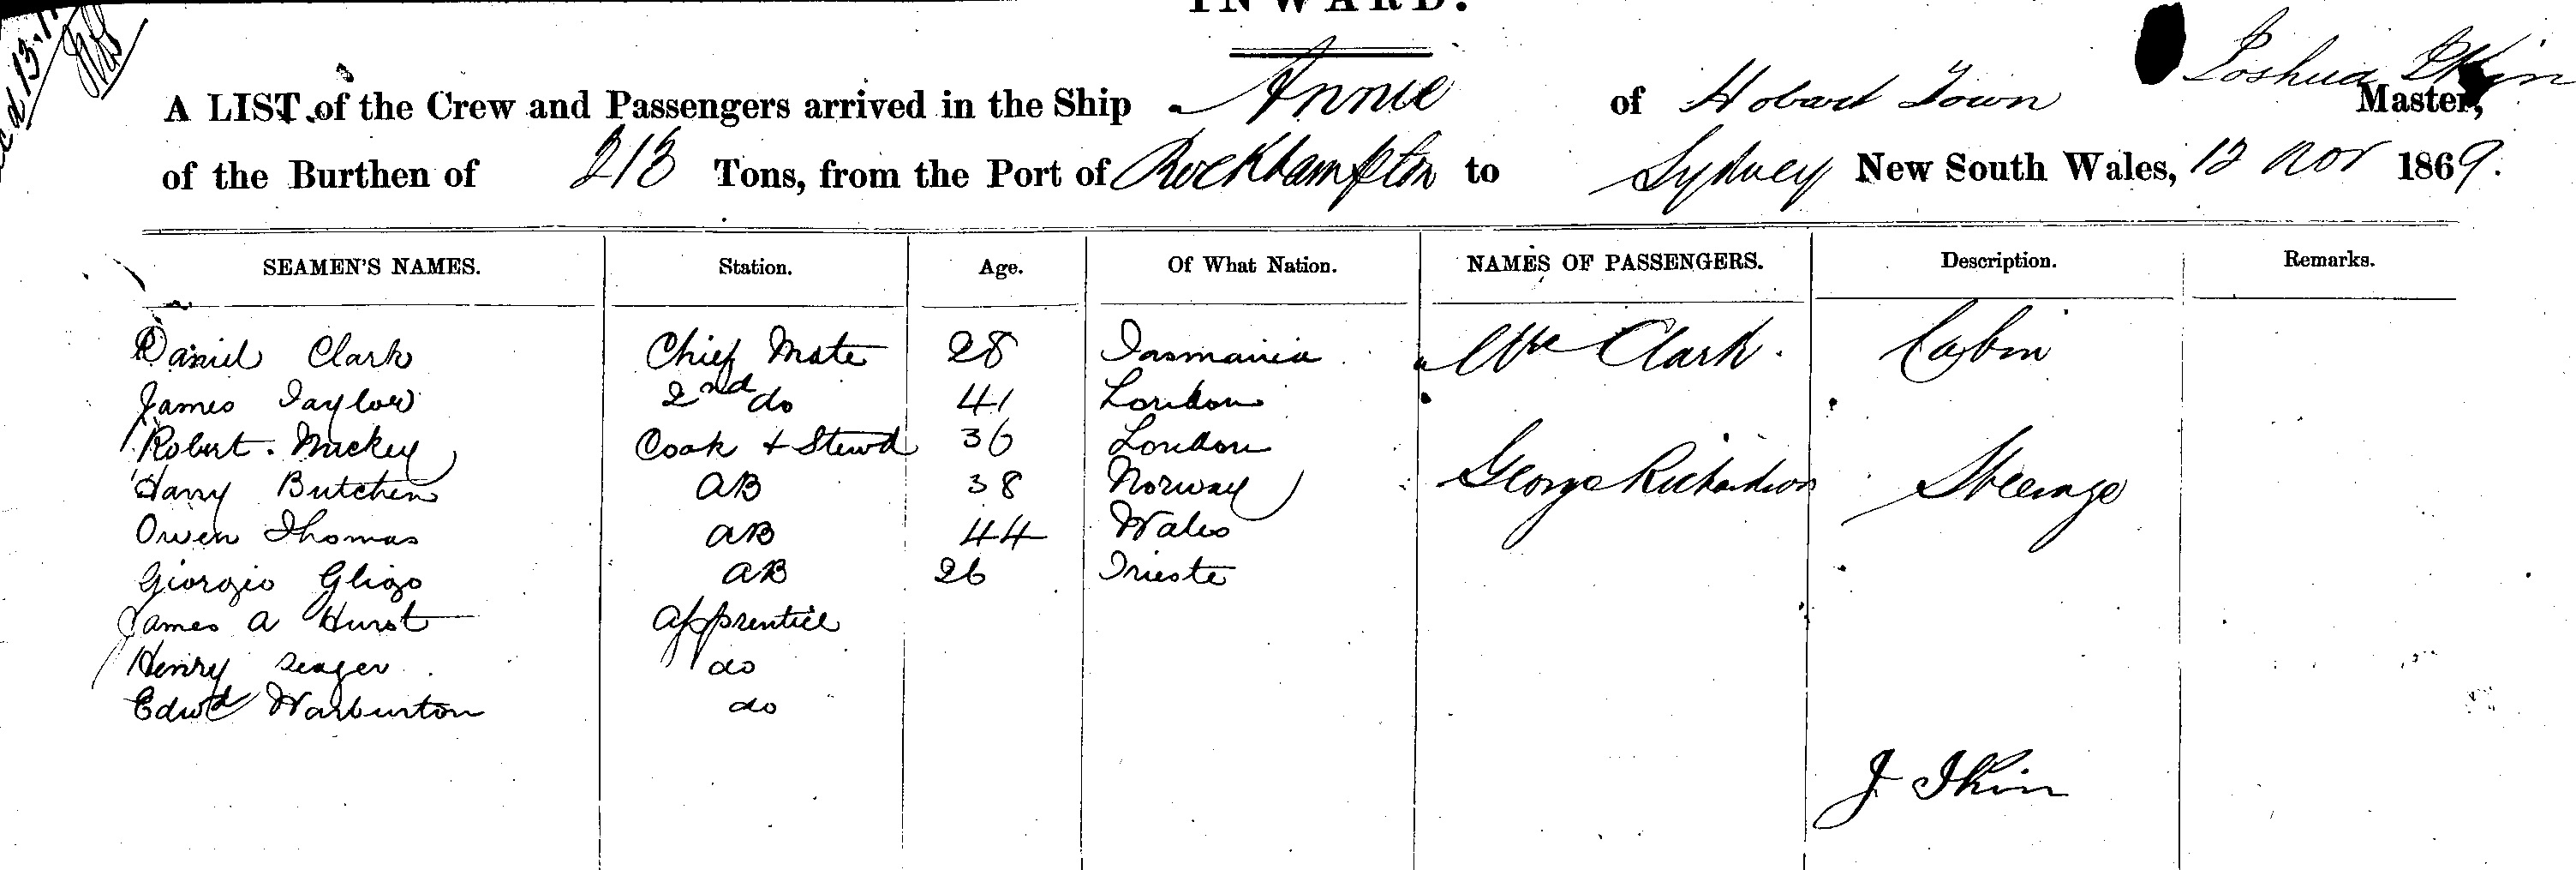 INWARD.
A LIST of the Crew and Passengers arrived in the Ship Annie of Hobart Town Joshua Ikin Master,
of the Burthen of 213 Tons, from the Port of Rockhampton to Sydney New South Wales, 12 Nov 1869.
SEAMEN'S NAMES. Station. Age. Of What Nation. NAMES OF PASSENGERS. Description. Remarks.
Daniel Clark Chief Mate 28 Tasmania Clark. Cabin
James Taylor 2nd do 41 London
Robert. Mickey Cook + Stewd 36 London
Harry Butchen AB 38 Norway George Richardson Steerage
Owen Thomas AB 44 Wales
Giorgio Gligo AB 26 Trieste
James A Hurst Apprentice
Henry Seager do
Edwd Warburton do
J Ikin